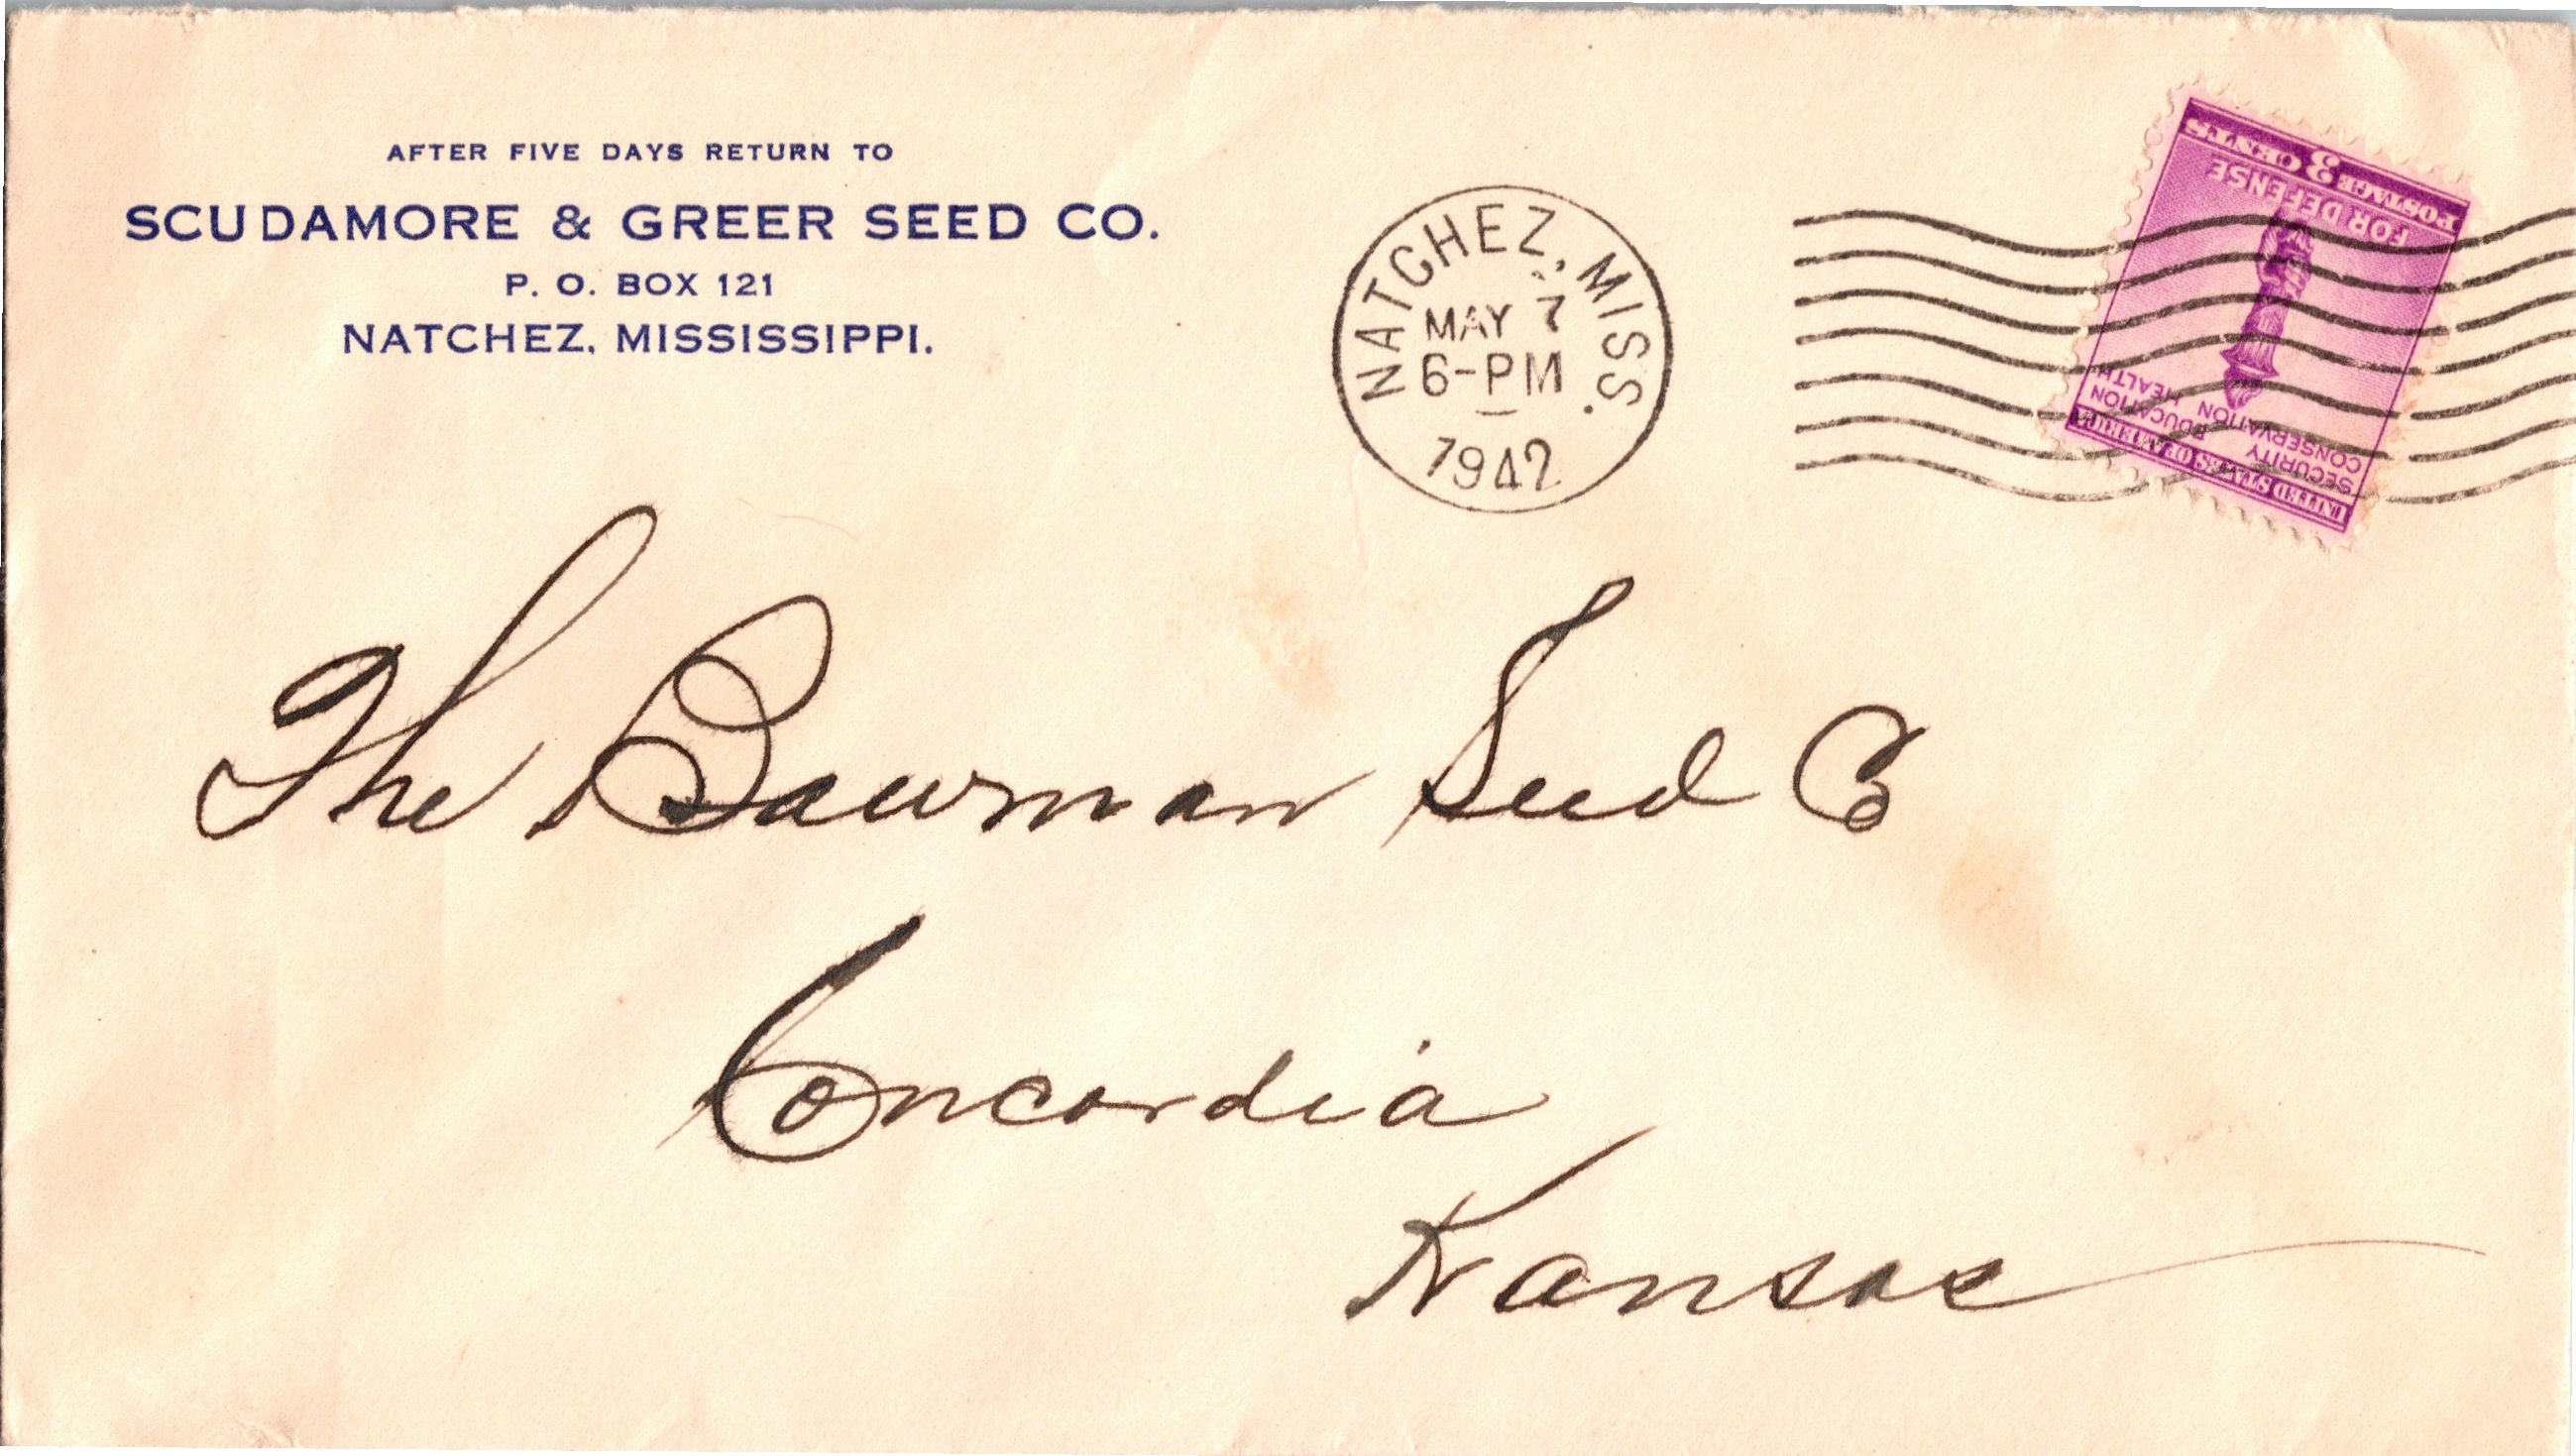 AFTER FIVE DAYS RETURN TO
SCUDAMORE & GREER SEED CO.
P. O. BOX 121
NATCHEZ, MISSISSIPPI.
NATCHEZ, MISS.
MAY 7
6-PM
1942
UNITED STATES OF AMERICA
SECURITY EDUCATION
CONSERVATION HEALTH
FOR DEFENSE
POSTAGE 3 CENTS
The Bowman Seed Co
Concordia
Kansas